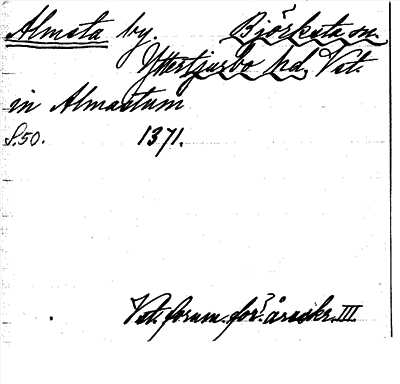 Almsta by. Björksta sn.
Yttertjurbo hd, Vst.
in Almastum
S.50. 1371.
Vst. fornm. för:s årsskr. III.